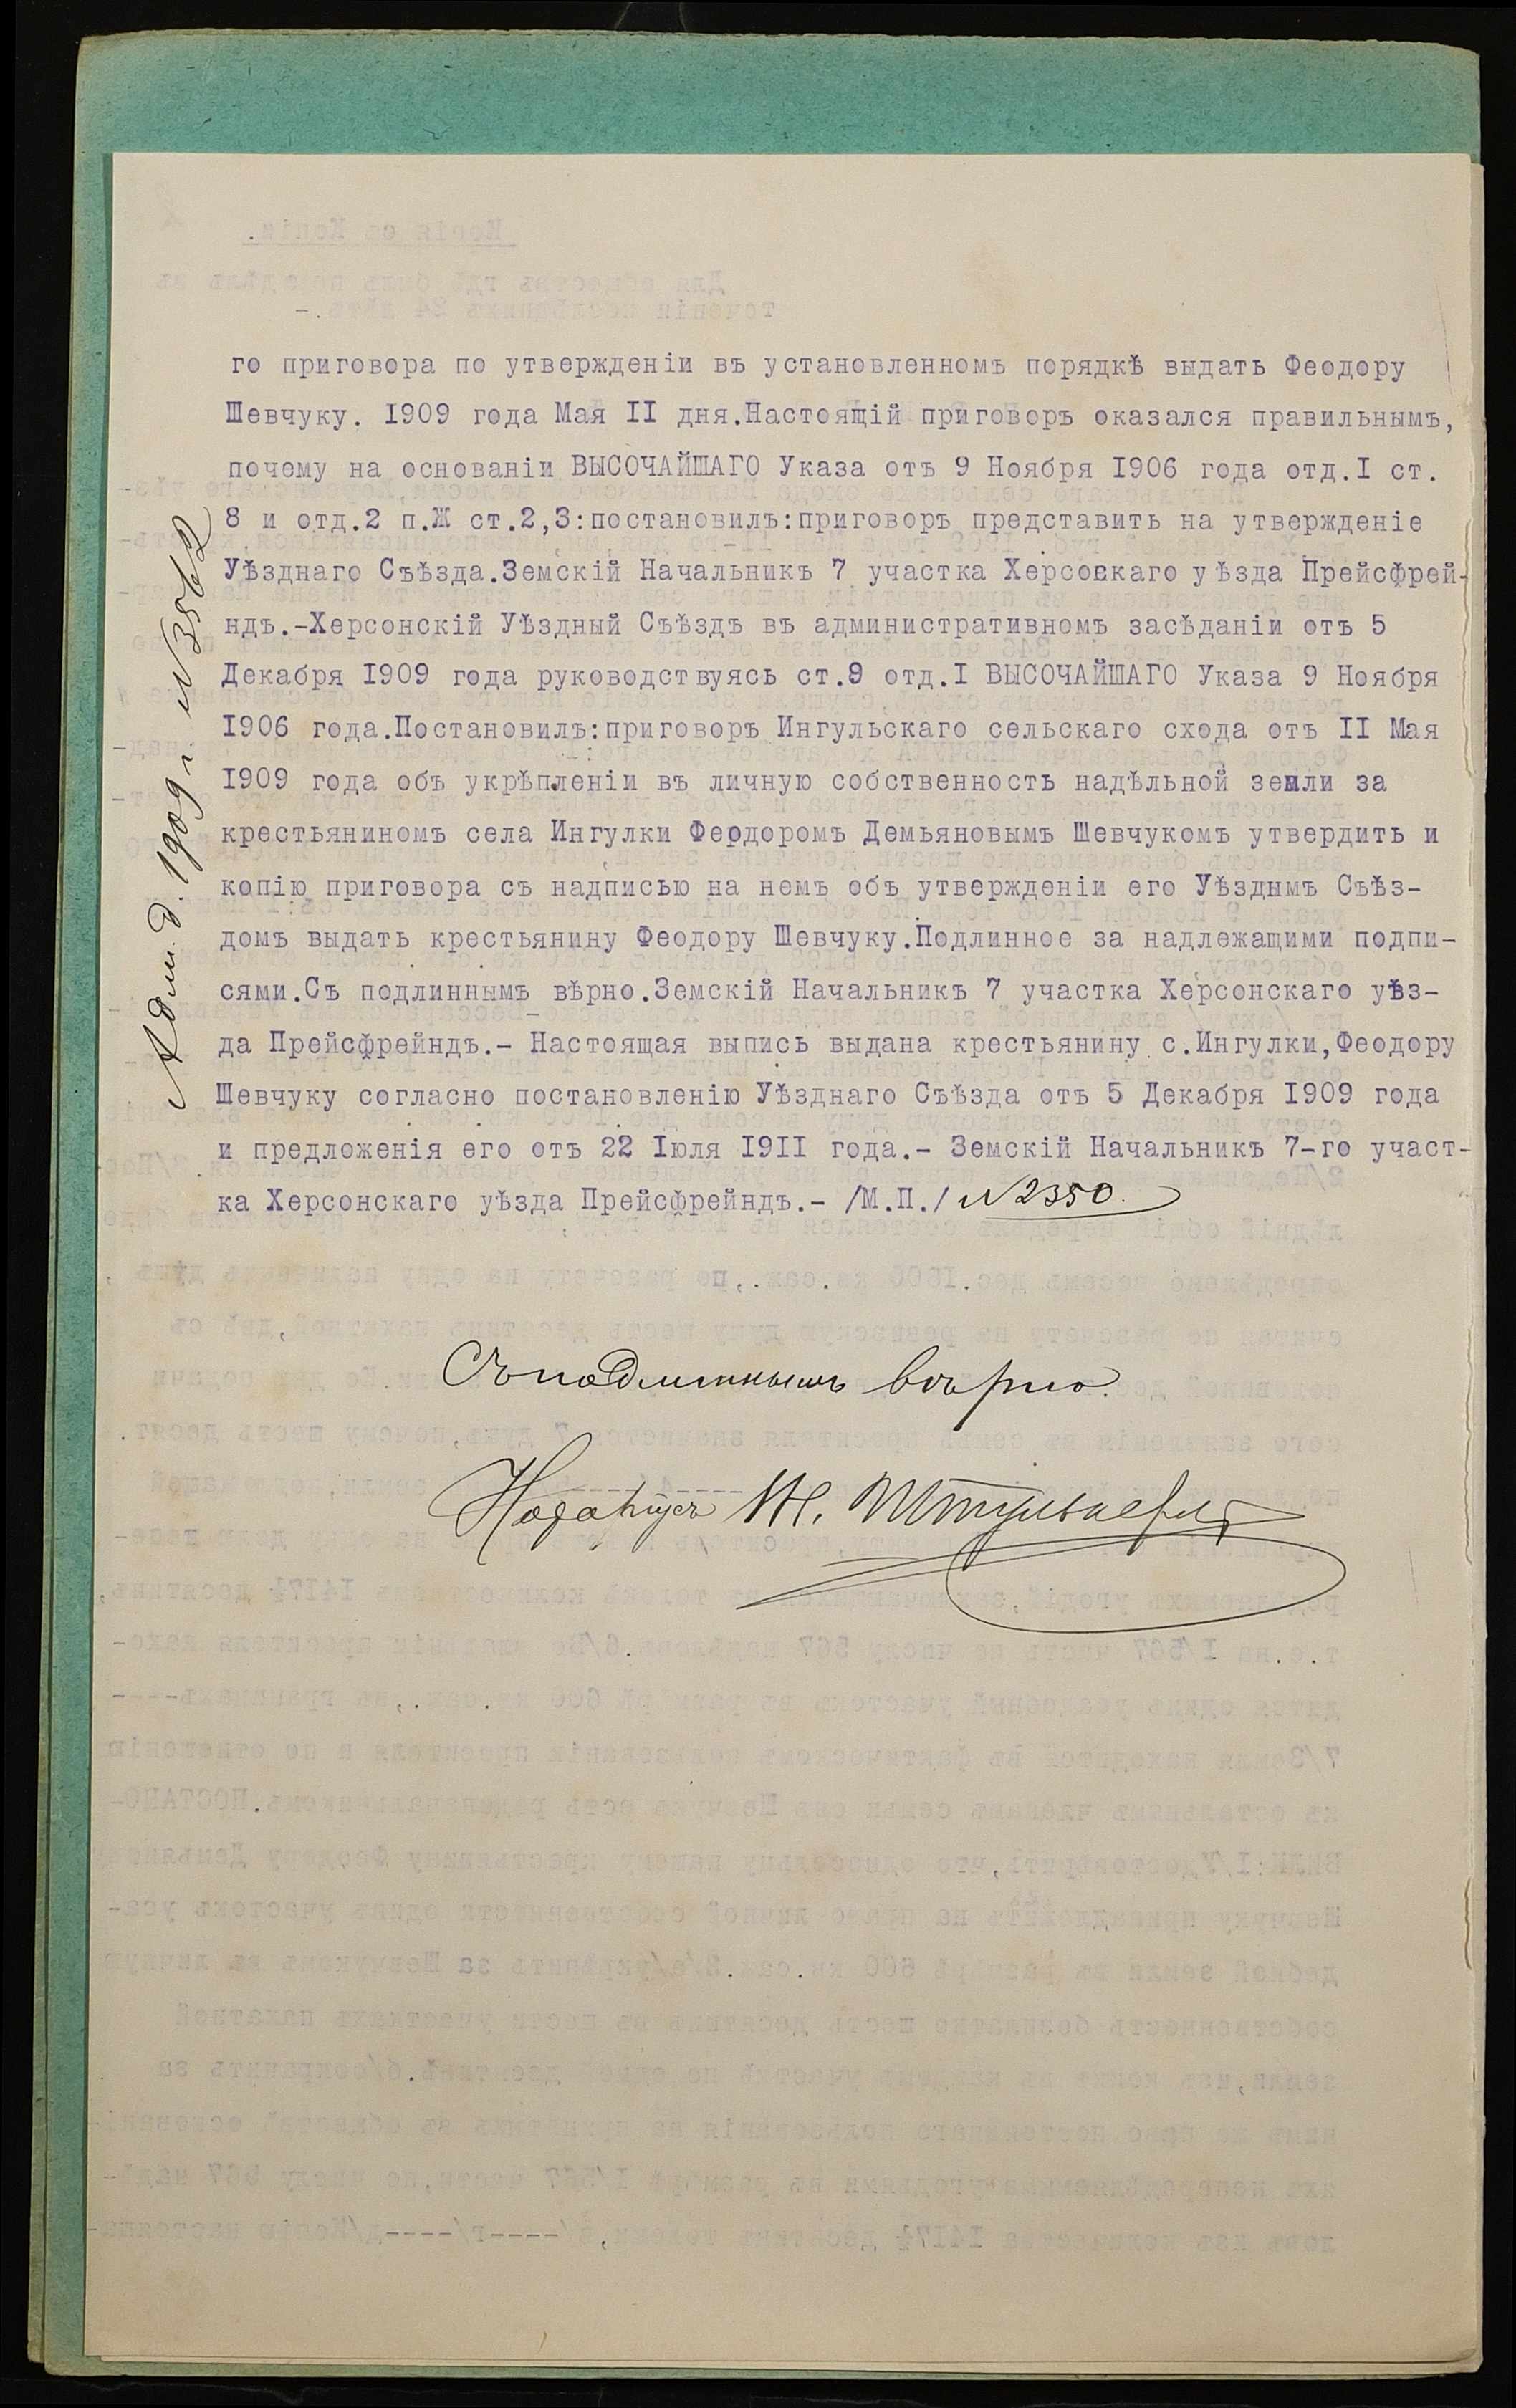 го приговора по утвержденіи въ установленномъ порядкѣ выдать Феодору
Шевчуку. 1909 года Мая II дня.Настоящій приговоръ оказался правильнымъ,
почему на основаніи ВЫСОЧАЙШАГО Указа отъ 9 Ноября 1906 года отд.I ст.
8 и отд.2 п.Ж ст.2,3:постановилъ:приговоръ представить на утвержденіе
Уѣзднаго Съѣзда.Земскій Начальникъ 7 участка Херсонкаго уѣзда Прейсфрей-
ндъ.-Херсонскій Уѣздный Съѣздъ въ административномъ засѣданіи отъ 5
Декабря 1909 года руководствуясь ст.9 отд.I ВЫСОЧАЙШАГО Указа 9 Ноября
1906 года.Постановилъ:приговоръ Ингульскаго сельскаго схода отъ II Мая
1909 года объ укрѣпленіи въ личную собственность надѣльной земли за
крестьяниномъ села Ингулки Феодоромъ Демьяновымъ Шевчукомъ утвердить и
копію приговора съ надписью на немъ объ утвержденіи его Уѣзднмъ Съѣз-
домъ выдать крестьянину Феодору Шевчуку.Подлинное за надлежащими подпи-
сями.Съ подлиннымъ вѣрно.Земскій Начальникъ 7 участка Херсонскаго уѣз-
да Прейсфрейндъ.- Настоящая выпись выдана крестьянину с.Ингулки,Феодору
Шевчуку согласно постановленію Уѣзднаго Съѣзда отъ 5 Декабря 1909 года
и предложенія его отъ 22 Іюля 1911 года.- Земскій Начальникъ 7-го участ-
ка Херсонскаго уѣзда Прейсфрейндъ.- /М.П./ №2350.
Адм. д. 1909 г. №3562
Съ подлиннымъ вѣрно.